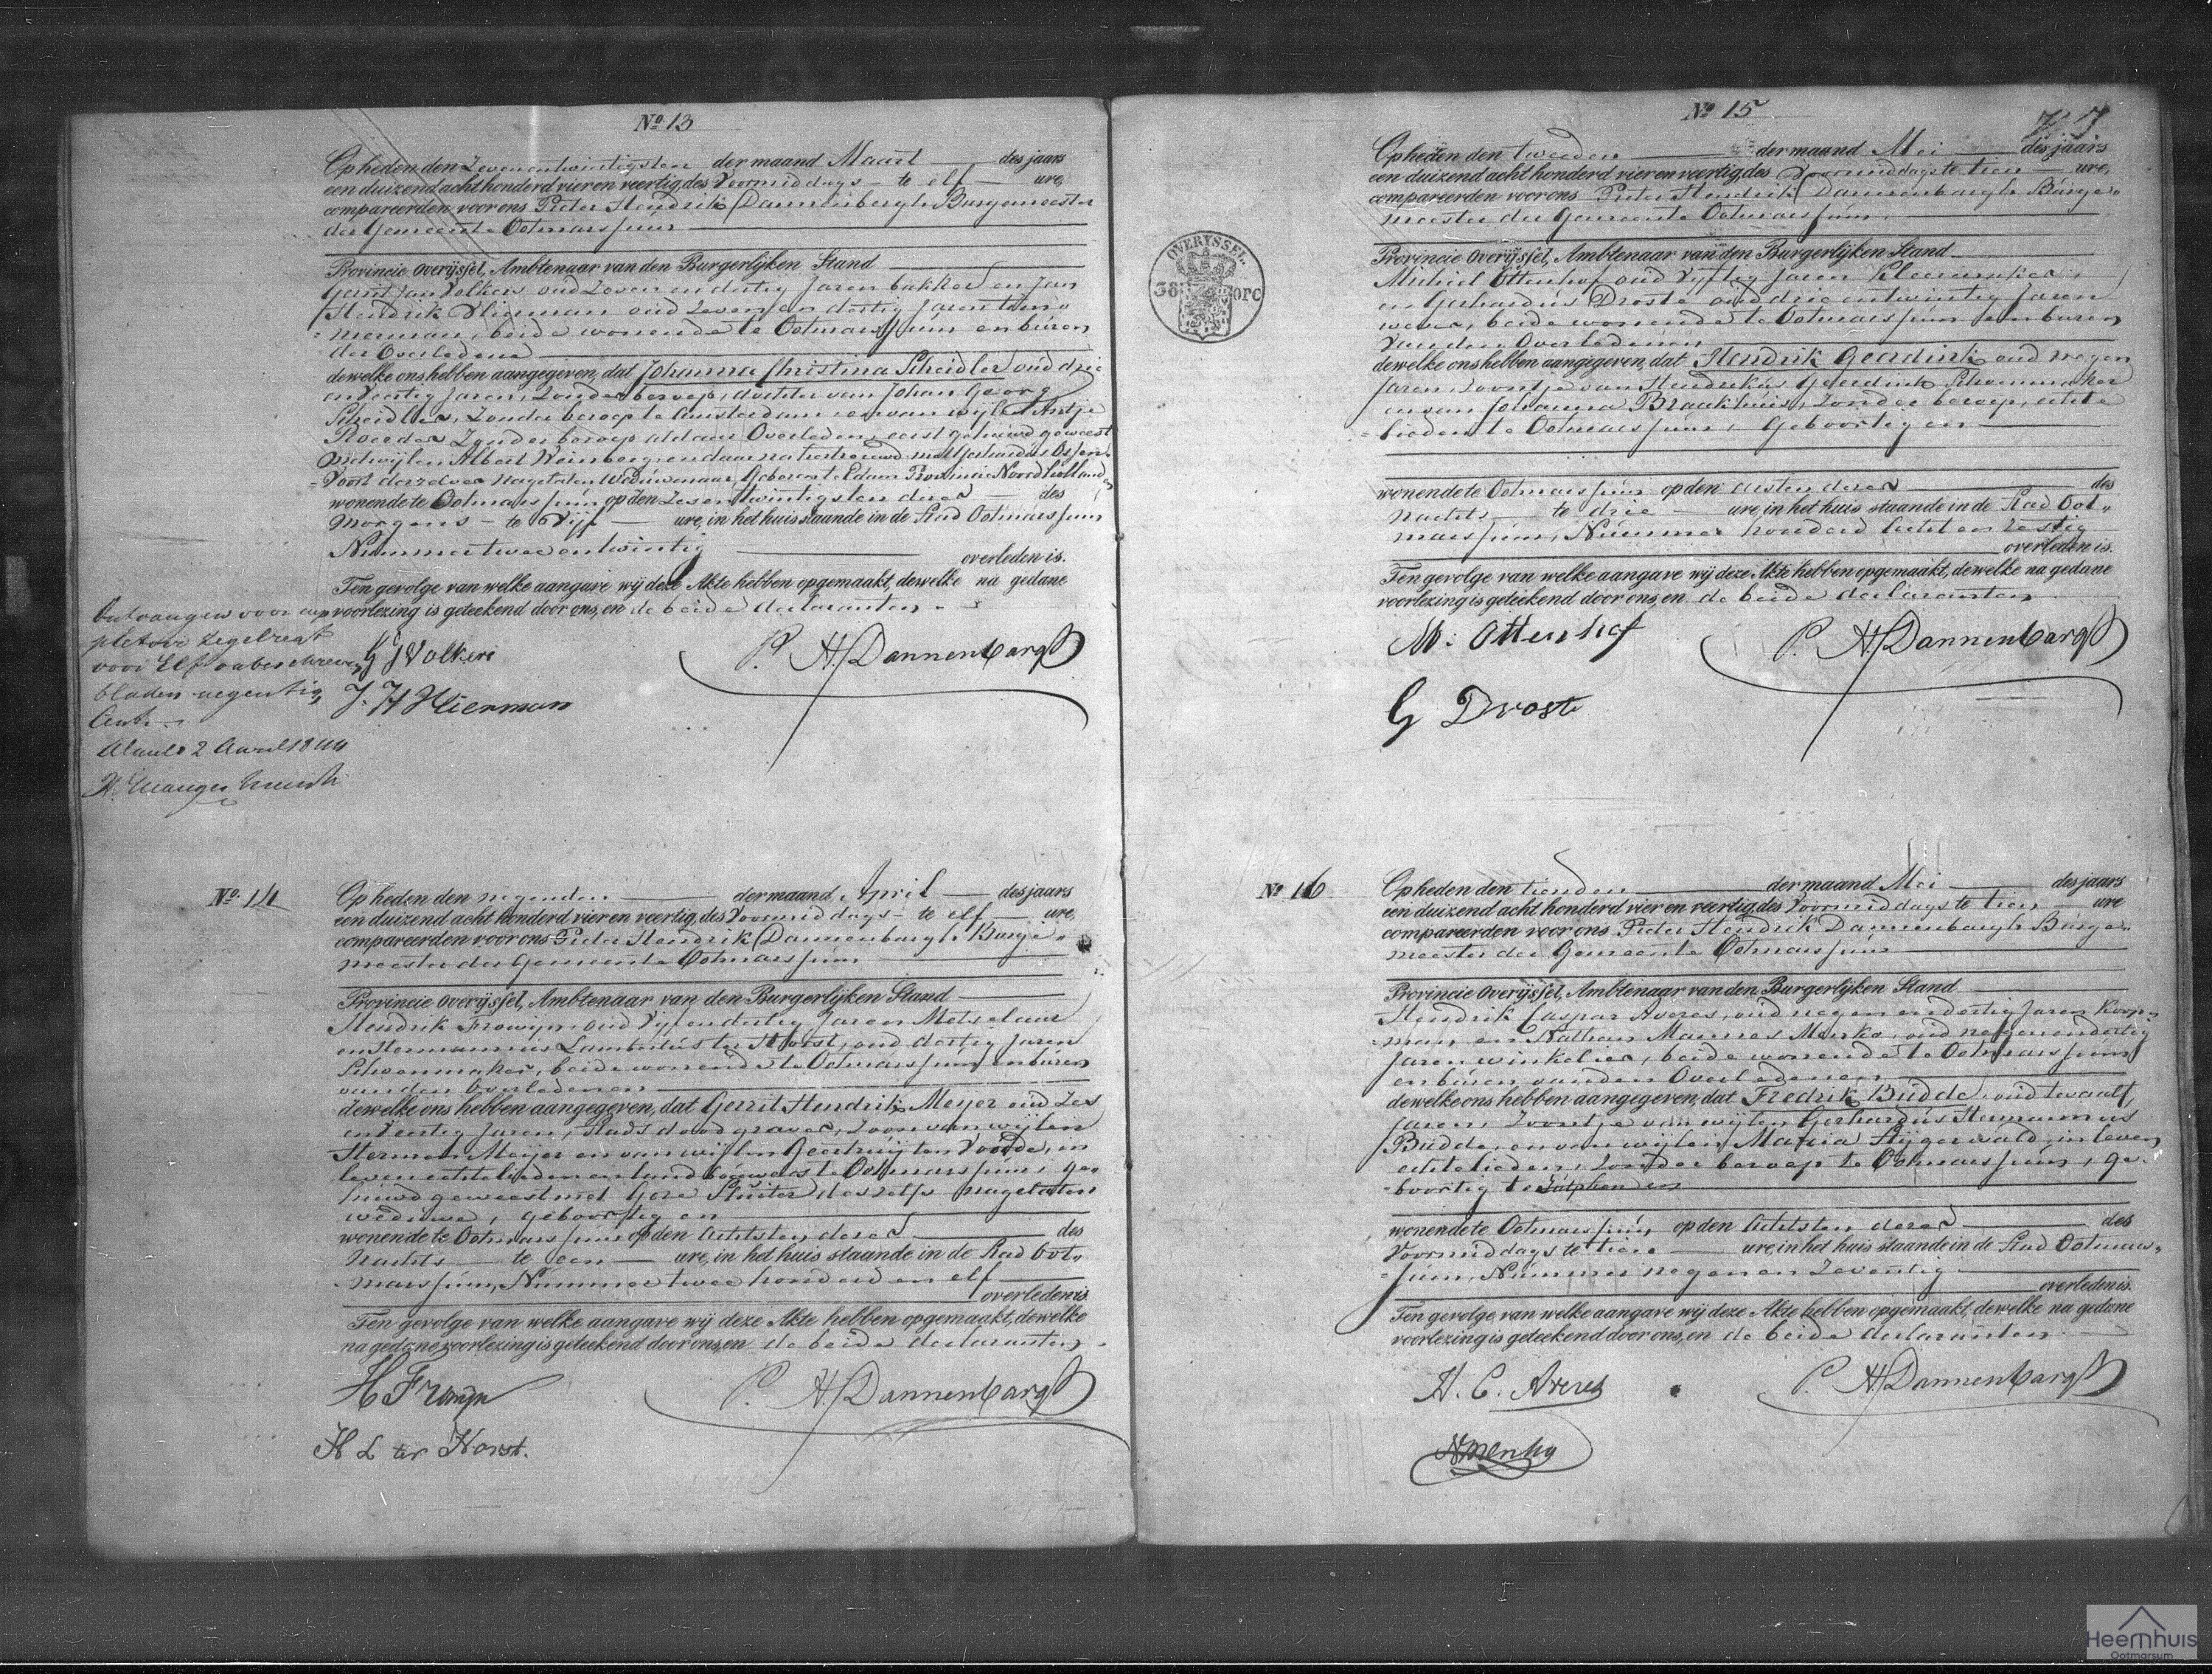 No. 13
Op heden den Zevenentwintigsten der maand Maart des jaars
een duizend acht honderd vier en veertig, des Voormiddags te elf ure,
compareerden voor ons Pieter Hendrik Dannenbargh Burgemeester
der Gemeente Ootmarssum
Provincie Overijssel, Ambtenaar van den Burgerlijken Stand
Gerrit Jan Volkers oud Zeven en dertig Jaren bakker en Jan
Hendrik oud Zeven en dertig Jaren tim„
„merman, beide wonende te Ootmarssum en buren
der Overledene
dewelke ons hebben aangegeven, dat Johanna Christina Scheidler oud drie
en Jaren, Zonder beroep, dochter van Johan Georg
Scheidler, Zonder beroep te Amsterdam en van wijlen Antje
Roeder Zonder beroep aldaar Overleden, eerst gehuwd geweest
met wijlen Albert Weinberg, en daarna hertrouwd met Gerhardus Ossen„
„voort derzelver Nagelaten Weduwenaar, Geboren te Edam Provincie Noordholland,
wonende te Ootmarssum op den Zesentwintigsten dezer des
Morgens te Vijf ure, in het huis staande in de Stad Ootmarssum
Nummer twee en twintig
overleden is.
Ten gevolge van welke aangave wij deze Akte hebben opgemaakt, dewelke na gedane
voorlezing is geteekend door ons, en de beide declaranten
Ontvangen voor sup
pletoir zegelregt
voor Elf
bladen negentig
Cent.
2 April 1844
G J Volkers
J. H.
P. H. Dannenbargh
No. 14
Op heden den negenden der maand April des jaars
een duizend acht honderd vier en veertig, des Voormiddags te elf ure,
compareerden voor ons Pieter Hendrik Dannenbargh Burge„
meester der Gemeente Ootmarssum
Provincie Overijssel, Ambtenaar van den Burgerlijken Stand
Hendrik Frowijn, oud Vijfendertig Jaren Metselaar
en Hermannus Lambertus ter Horst, oud dertig Jaren
Schoenmaker, beide wonende te Ootmarssum en buren
van den Overledenen
dewelke ons hebben aangegeven, dat Gerrit Hendrik Meijer oud Zes
en Jaren, Stads doodgraver, Zoon van wijlen
Herman Meijer en van wijlen Geertruij ten Voorde, in
leven echtelieden en landbouwers te Ootmarssum, ge„
huwd geweest met Gese Sluiter deszelfs nagelaten
weduwe, geboortig en
wonende te Ootmarssum op den Achtsten dezer des
Nachts te een ure, in het huis staande in de Stad Oot„
marssum, Nummer twee honderd en elf
overleden is
Ten gevolge van welke aangave wij deze Akte hebben opgemaakt, dewelke
na gedane voorlezing is geteekend door ons, en de beide declaranten
H Frowijn
H L ter Horst.
P. H. Dannenbargh
No 15
7
Op heden den tweeden der maand Mei des jaars
een duizend acht honderd vier en veertig, des Voormiddags te tien ure,
compareerden voor ons Pieter Hendrik Dannenbargh Burge„
meester der Gemeente Ootmarssum
OVERYSSEL.
38 OPC
Provincie Overijssel, Ambtenaar van den Burgerlijken Stand
Michiel Ottenhof oud Vijftig Jaren Kleermaker,
en Gerhardus Droste oud drie entwintig Jaren
wever, beide wonende te Ootmarssum en buren
van den Overledenen
dewelke ons hebben aangegeven, dat Hendrik Geerdink oud negen
Jaren, Zoontje van Hendrikus Geerdink Schoenmaker
en van Johanna Braakhuis, Zonder beroep, echte
„lieden te Ootmarssum, Geboortig en
wonende te Ootmarssum op den Eersten dezer des
Nachts te drie ure, in het huis staande in de Stad Oot„
marssum, Nummer honderd Acht en Zestig
overleden is.
Ten gevolge van welke aangave wij deze Akte hebben opgemaakt, dewelke na gedane
voorlezing is geteekend door ons, en de beide declaranten
M: Ottenhof
G Droste
P. H. Dannenbargh
No 16
Op heden den tienden der maand Mei des jaars
een duizend acht honderd vier en veertig, des Voormiddags te tien ure
compareerden voor ons Pieter Hendrik Dannenbargh Burge„
meester der Gemeente Ootmarssum
Provincie Overijssel, Ambtenaar van den Burgerlijken Stand
Hendrik Caspar Averes, oud negen en dertig Jaren Koop„
„man en Nathan Mannes Menko, oud negenendertig
Jaren winkelier, beide wonende te Ootmarssum
en buren van den Overledenen
dewelke ons hebben aangegeven, dat Fredrik Budde, oud twaalf
Jaren, Zoontje van wijlen Gerhardus Hermannus
Budde, en van wijlen Maria Stijgerwald, in leven
echtelieden, Zonder beroep te Ootmarssum, ge„
„boortig te Zutphen en
wonende te Ootmarssum, op den Achtsten dezer des
Voormiddags te tien ure, in het huis staande in de Stad Ootmars„
„sum, Nummer negen en Zeventig
overleden is.
Ten gevolge van welke aangave wij deze Akte hebben opgemaakt, dewelke na gedane
voorlezing is geteekend door ons, en de beide declaranten.
H. C. Averes
NMenko
P. H. Dannenbargh
Heemhuis
Ootmarsum